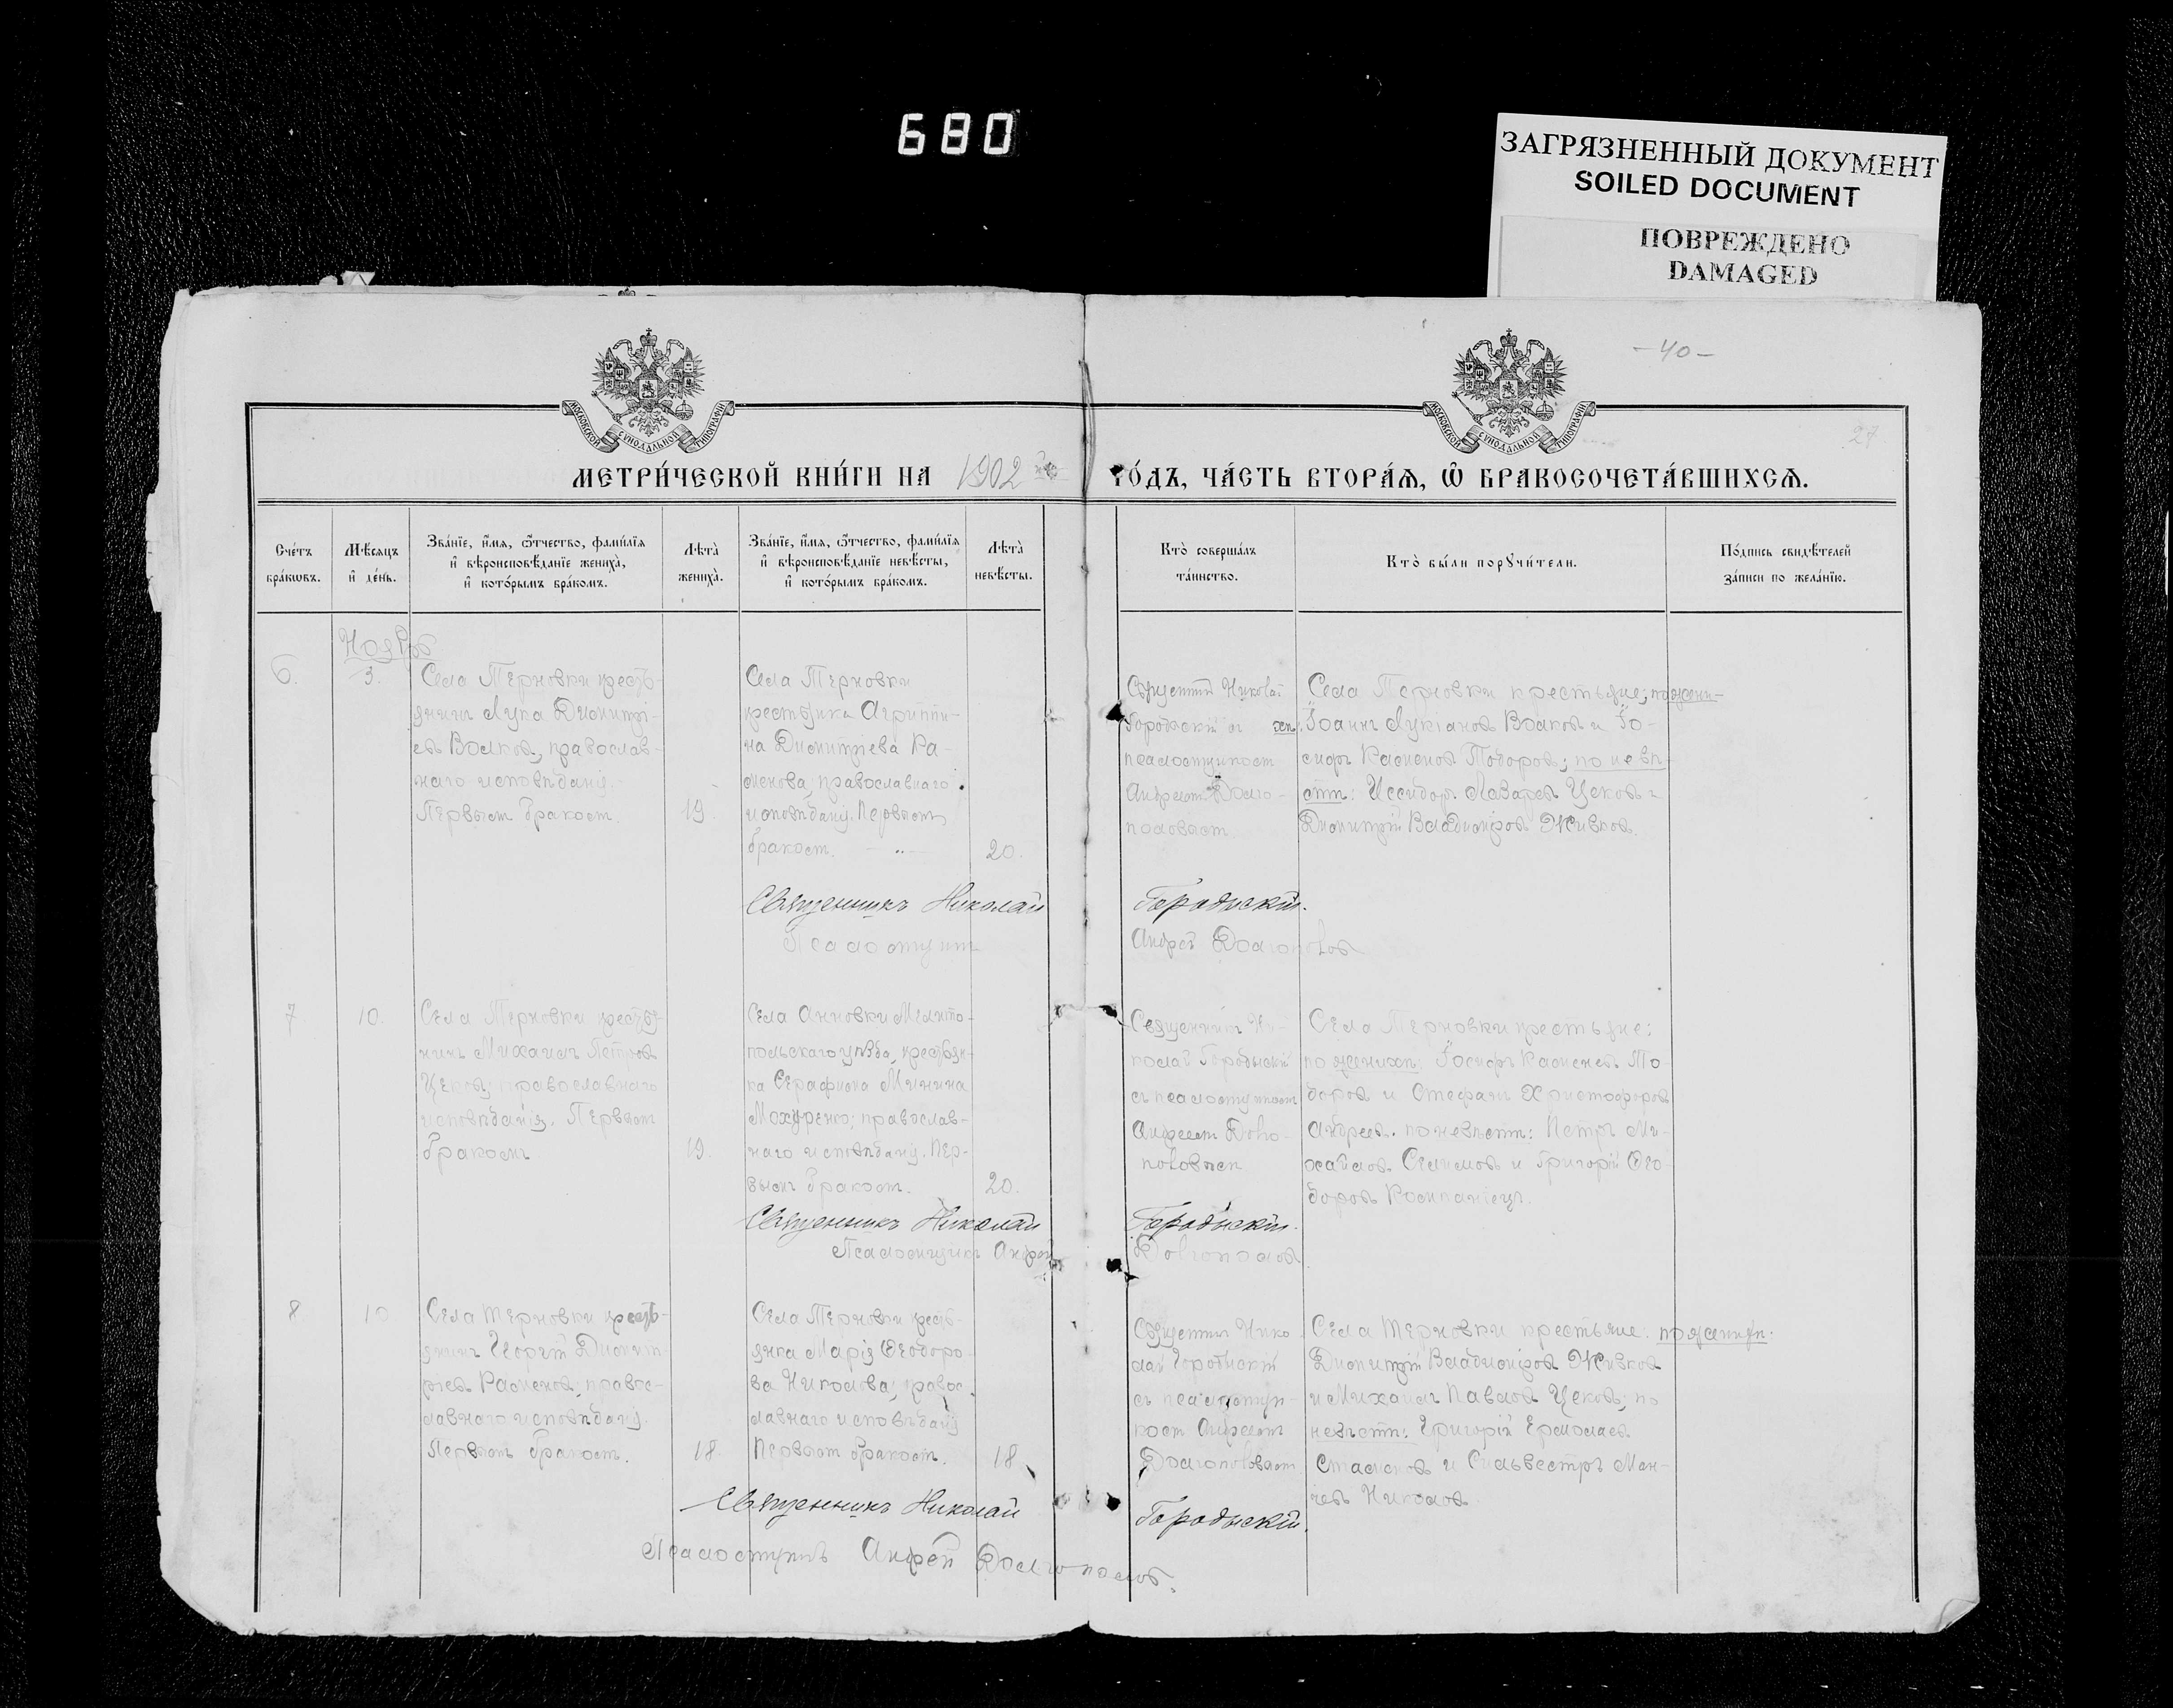 680
ЗАГРЯЗНЕННЫЙ ДОКУМЕНТ
SOILED DOCUMENT
ПОВРЕЖДЕНО
DAMAGED
-40-
МОСКОВСКОЙ СУНОДАЛЬНОЙ ТИПОГРАФІИ
МОСКОВСКОЙ СУНОДАЛЬНОЙ ТИПОГРАФІИ
27
МЕТРИ́ЧЕСКОЙ КНИ́ГИ НА 1902
ГО́ДЪ, ЧА́СТЬ ВТОРА́Ѧ, Ѡ҆ БРАКОСОЧЕТА́ВШИХСѦ.
Сче́тъ
бра́кѡвъ.
Мѣ́сѧцъ
и҆ де́нь.
Зва́нїе, и҆́мѧ, ѻ҆́тчество, фами́лїѧ
и҆ вѣроисповѣ́данїе жениха̀,
и҆ кото́рымъ бра́комъ.
Лѣ́та̀
жениха̀.
Зва́нїе, и҆́мѧ, ѻ҆́тчество, фами́лїѧ
и҆ вѣроисповѣ́данїе невѣ́сты,
и҆ кото́рымъ бра́комъ.
Лѣ́та̀
невѣ́сты.
Кто̀ соверша́лъ
та́инство.
Кто̀ бы́ли порꙋчи́тели.
По́дпись свидѣ́телей
за́писи по жела́нїю.
Ноябрь
6.
3.
Села Терновки кресть-
янинъ Лука Димитрі-
евъ Волковъ, православ-
наго исповѣданія.
Первымъ бракомъ.
19.
Села Терновки
крестьянка Агриппи-
на Димитріева Ка-
менова, православнаго
исповѣданія. Первымъ
бракомъ.
20.
Священникъ Николай
Городыскій съ
псаломщикомъ
Андреемъ Долго-
половымъ
Села Терновки крестьяне; по жени-
хѣ: Іоаннъ Лукіановъ Волковъ и Іо-
сифъ Каменовъ Тодоровъ; по невѣ-
стѣ: Исидоръ Лазаревъ Цековъ и
Димитрій Владиміровъ Живковъ.
Священникъ Николай Городыскій.
Псаломщикъ Андрей Долгополовъ
7
10.
Села Терновки крестья-
нинъ Михаилъ Петровъ
Цековъ; православнаго
исповѣданія. Первымъ
бракомъ
19.
Села Анновки Мелито-
польскаго уѣзда, крестьян-
ка Серафима Минина
православ-
наго исповѣданія. Пер-
вымъ бракомъ.
20.
Священникъ Ни-
колай Городыскій
съ псаломщикомъ
Андреемъ Долго-
половымъ
Села Терновки крестьяне:
по женихѣ: Іосифъ Каменевъ То-
доровъ и Стефанъ Христофоровъ
Андреевъ. по невѣстѣ: Петръ Ми-
хайловъ Селимовъ и Григорій Ѳео-
доровъ Компаніецъ.
Священникъ Николай Городыскій.
Псаломщикъ Андрей Долгополовъ
8
10
Села Терновки кресть-
янинъ Георгій Димит-
ріевъ Каменовъ, правос-
лавнаго исповѣданія.
Первымъ бракомъ.
18.
Села Терновки кресть-
янка Марія Ѳеодоро-
ва Николова; правос-
лавнаго исповѣданія
Первымъ бракомъ.
18.
Священникъ Нико-
лай Городыскій
съ псаломщи-
комъ Андреемъ
Долгополовымъ
Села Терновки крестьяне: по женихѣ.
Димитрій Владиміровъ Живковъ
и Михаилъ Павловъ Цековъ; по
невѣстѣ: Григорій Ермолаевъ
Стаменовъ и Сильвестръ Ман-
чевъ Николовъ
Священникъ Николай Городыскій.
Псаломщикъ Андрей Долгополовъ.